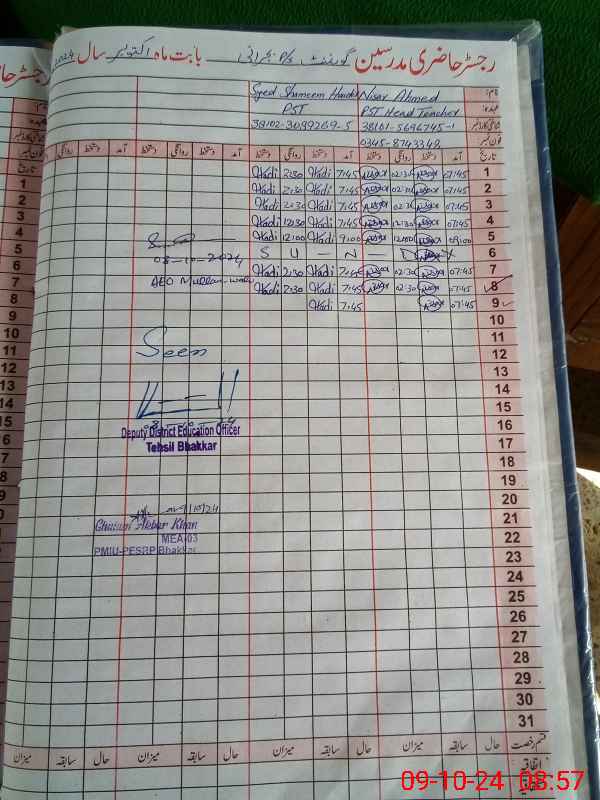 رجسٹر حاضری مدرسین گورنمنٹ P/S بابت ماہ اکتوبر سال 2024
رجسٹر حا
نام:
Nisar Ahmed
Syed Shameem Haider
عہدہ:
PST Head Teacher
PST
شناختی کارڈ نمبر
38101-5696745-1
38102-3099269-5
فون نمبر
0345-8743348
تاریخ آمد دستخط روانگی دستخط آمد دستخط روانگی دستخط آمد دستخط روانگی دستخط آمد دستخط روانگی
1 07:45 02:30 7:45 Hadi 2:30 Hadi
2 07:45 02:30 7:45 Hadi 2:30 Hadi
3 07:45 02:30 7:45 Hadi 2:30 Hadi
4 07:45 12:30 7:45 Hadi 12:30 Hadi
5 09:00 12:00 9:00 Hadi 12:00 Hadi
6 S U - N - D
7 07:45 02:30 7:45 Hadi 2:30 Hadi
8 07:45 02:30 7:45 Hadi 2:30 Hadi
9 07:45 7:45 Hadi
10
11
12
13
14
15
16
17
18
19
20
21
22
23
24
25
26
27
28
29
30
31
08-10-2024
AEO
Seen
Deputy District Education Officer
Tehsil Bhakkar
/10/24
Ghulam Akbar Khan
MEA-03
PMIU-PESRP Bhakkar
قسم رخصت حال سابقہ میزان حال سابقہ میزان حال سابقہ میزان حال سابقہ میزان
اتفاقیہ
09-10-24 08:57